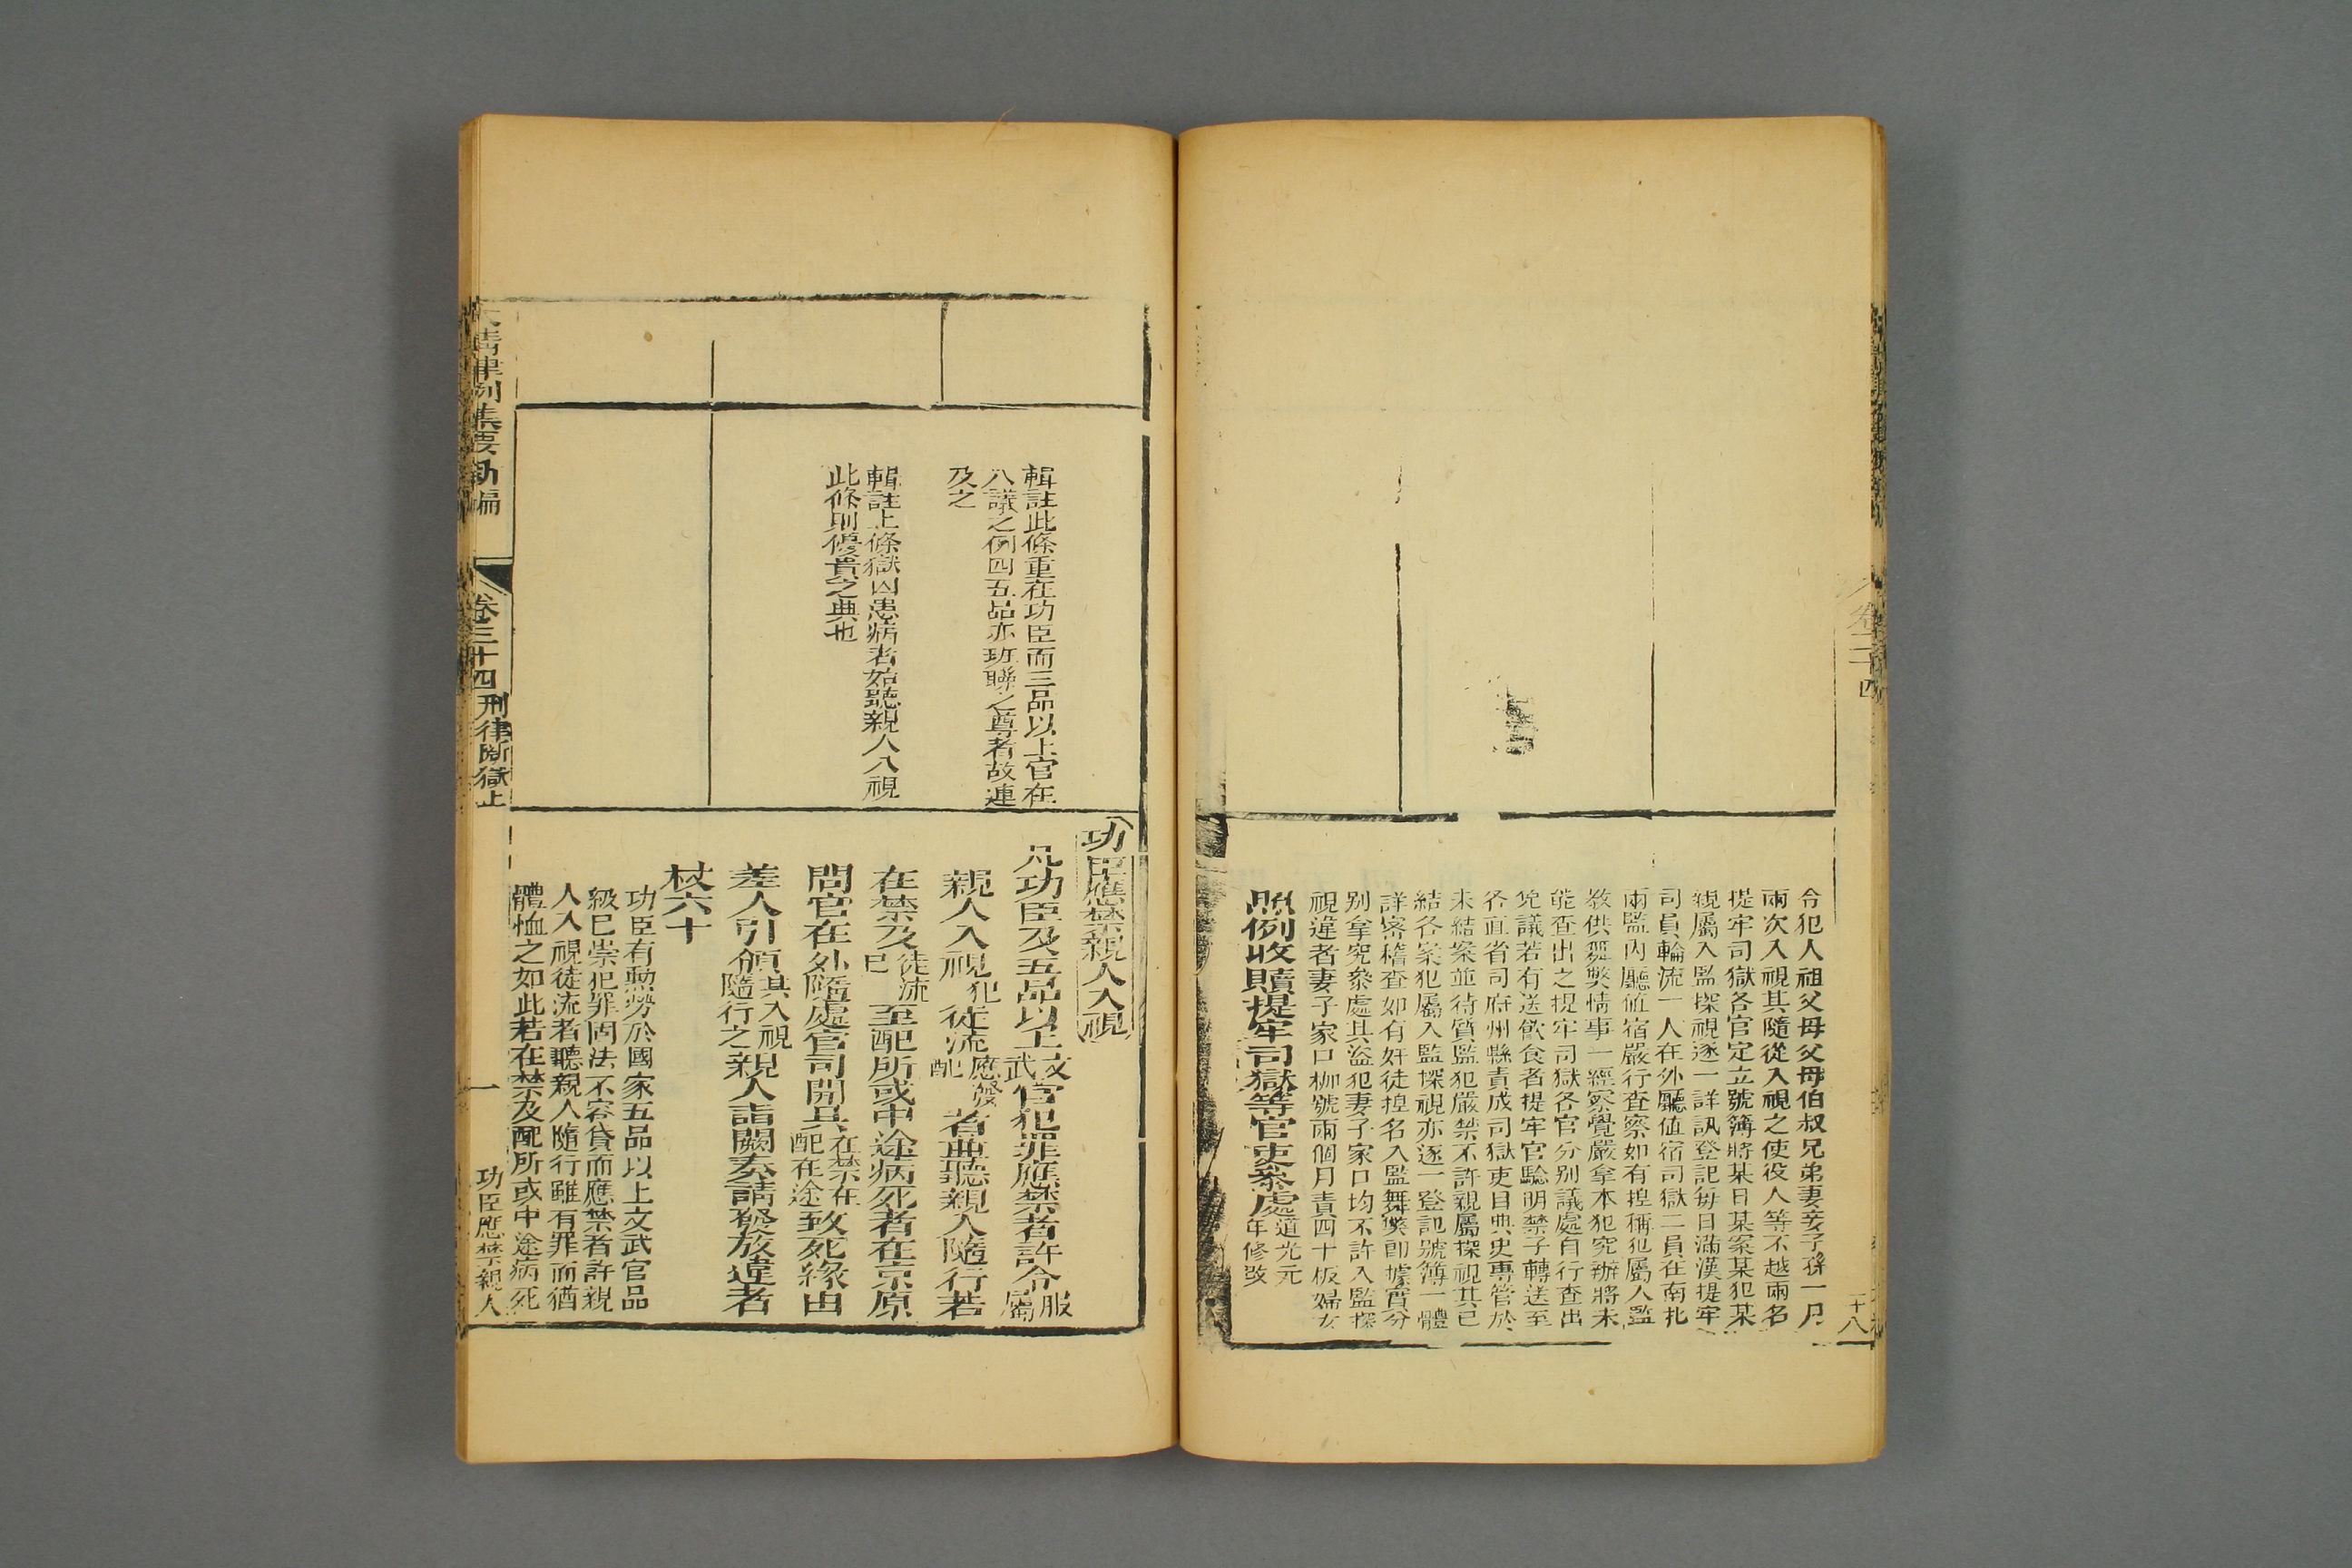 令犯人祖父母父母伯叔兄弟妻妾子孫一月
兩次入視其隨從入視之使役人等不越兩名
提牢司獄各官定立號簿將某日某案某犯某
親屬入監探視逐一詳訊登記每日滿漢提牢
司員輪流一人在外廳值宿司獄二員在南北
兩監內廳值宿嚴行查察如有揑稱犯屬入監
教供舞弊情事一經察覺嚴拿本犯究辦將未
能查出之提牢司獄各官分别議處自行查出
免議若有送飲食者提牢官驗明禁子轉送至
各直省司府州縣責成司獄吏目典史專管於
未結案並待質監犯嚴禁不許親屬探視其已
結各案犯屬入監探視亦逐一登記號簿一體
詳密稽查如有奸徒揑名入監舞弊卽據實分
别拿究叅處其盜犯妻子家口均不許入監探
視違者妻子家口枷號兩個月責四十板婦女
照例收贖提牢司獄等官吏叅處道光元年修改
卷三十四
十八
功臣應禁親人入視
凡功臣及五品以上文武官犯罪應禁者許令服屬
親人入視犯徒流應發配者並聽親人隨行若
在禁及徒流已至配所或中途病死者在京原
問官在外隨處官司開具在禁在配在途致死緣由
差人引領其入視隨行之親人詣闕奏請發放違者
杖六十
功臣有勲勞於國家五品以上文武官品
級已崇犯罪固法不容貸而應禁者許親
人入視徒流者聽親人隨行雖有罪而猶
體恤之如此若在禁及配所或中途病死
輯註此條重在功臣而三品以上官在
八議之例四五品亦班聯之尊者故連
及之
輯註上條獄囚患病者始聽親人入視
此條則優貴之典也
大清律例集要新編
卷三十四刑律斷獄上
一
功臣應禁親人